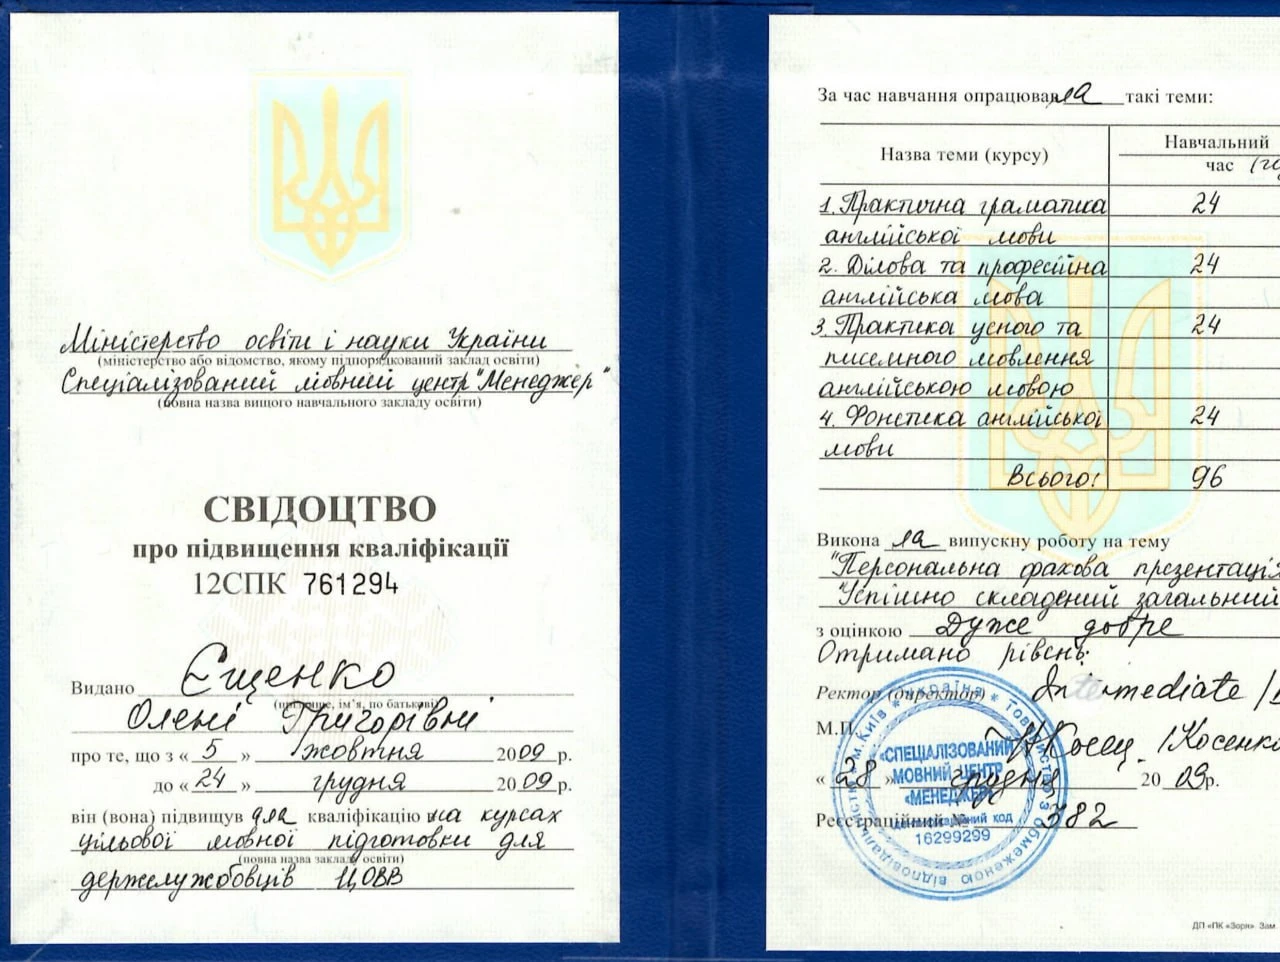 Міністерство освіти і науки України
(міністерство або відомство, якому підпорядкований заклад освіти)
Спеціалізований мовний центр "Менеджер"
(повна назва вищого навчального закладу освіти)
СВІДОЦТВО
про підвищення кваліфікації
12СПК 761294
Видано Єщенко
(прізвище, ім'я, по батькові)
Олені Григорівні
про те, що з « 5 » жовтня 2009 р.
до « 24 » грудня 2009 р.
він (вона) підвищув
кваліфікацію на курсах
цільової мовної підготовки для
(повна назва закладу освіти)
держслужбовців ЦОВВ
За час навчання опрацювала такі теми:
Назва теми (курсу)
Навчальний
час
1. Практична граматика 24
англійської мови
2. Ділова та професійна 24
англійська мова
3. Практика усного та 24
писемного мовлення
англійською мовою
4. Фонетика англійської 24
мови
Всього: 96
Виконала випускну роботу на тему
"Персональна фахова презентація
Успішно складений загальний
з оцінкою Дуже добре
Отримано рівень:
Ректор (директор) Intermediate
М.П. /Косенко
« 28 » грудня 2009р.
Реєстраційний № 382
Україна * Товариство з обмеженою відповідальністю * м.Київ *
«СПЕЦІАЛІЗОВАНИЙ
МОВНИЙ ЦЕНТР
«МЕНЕДЖЕР»
Ідентифікаційний код
16299299
ДП «ПК «Зоря». Зам.